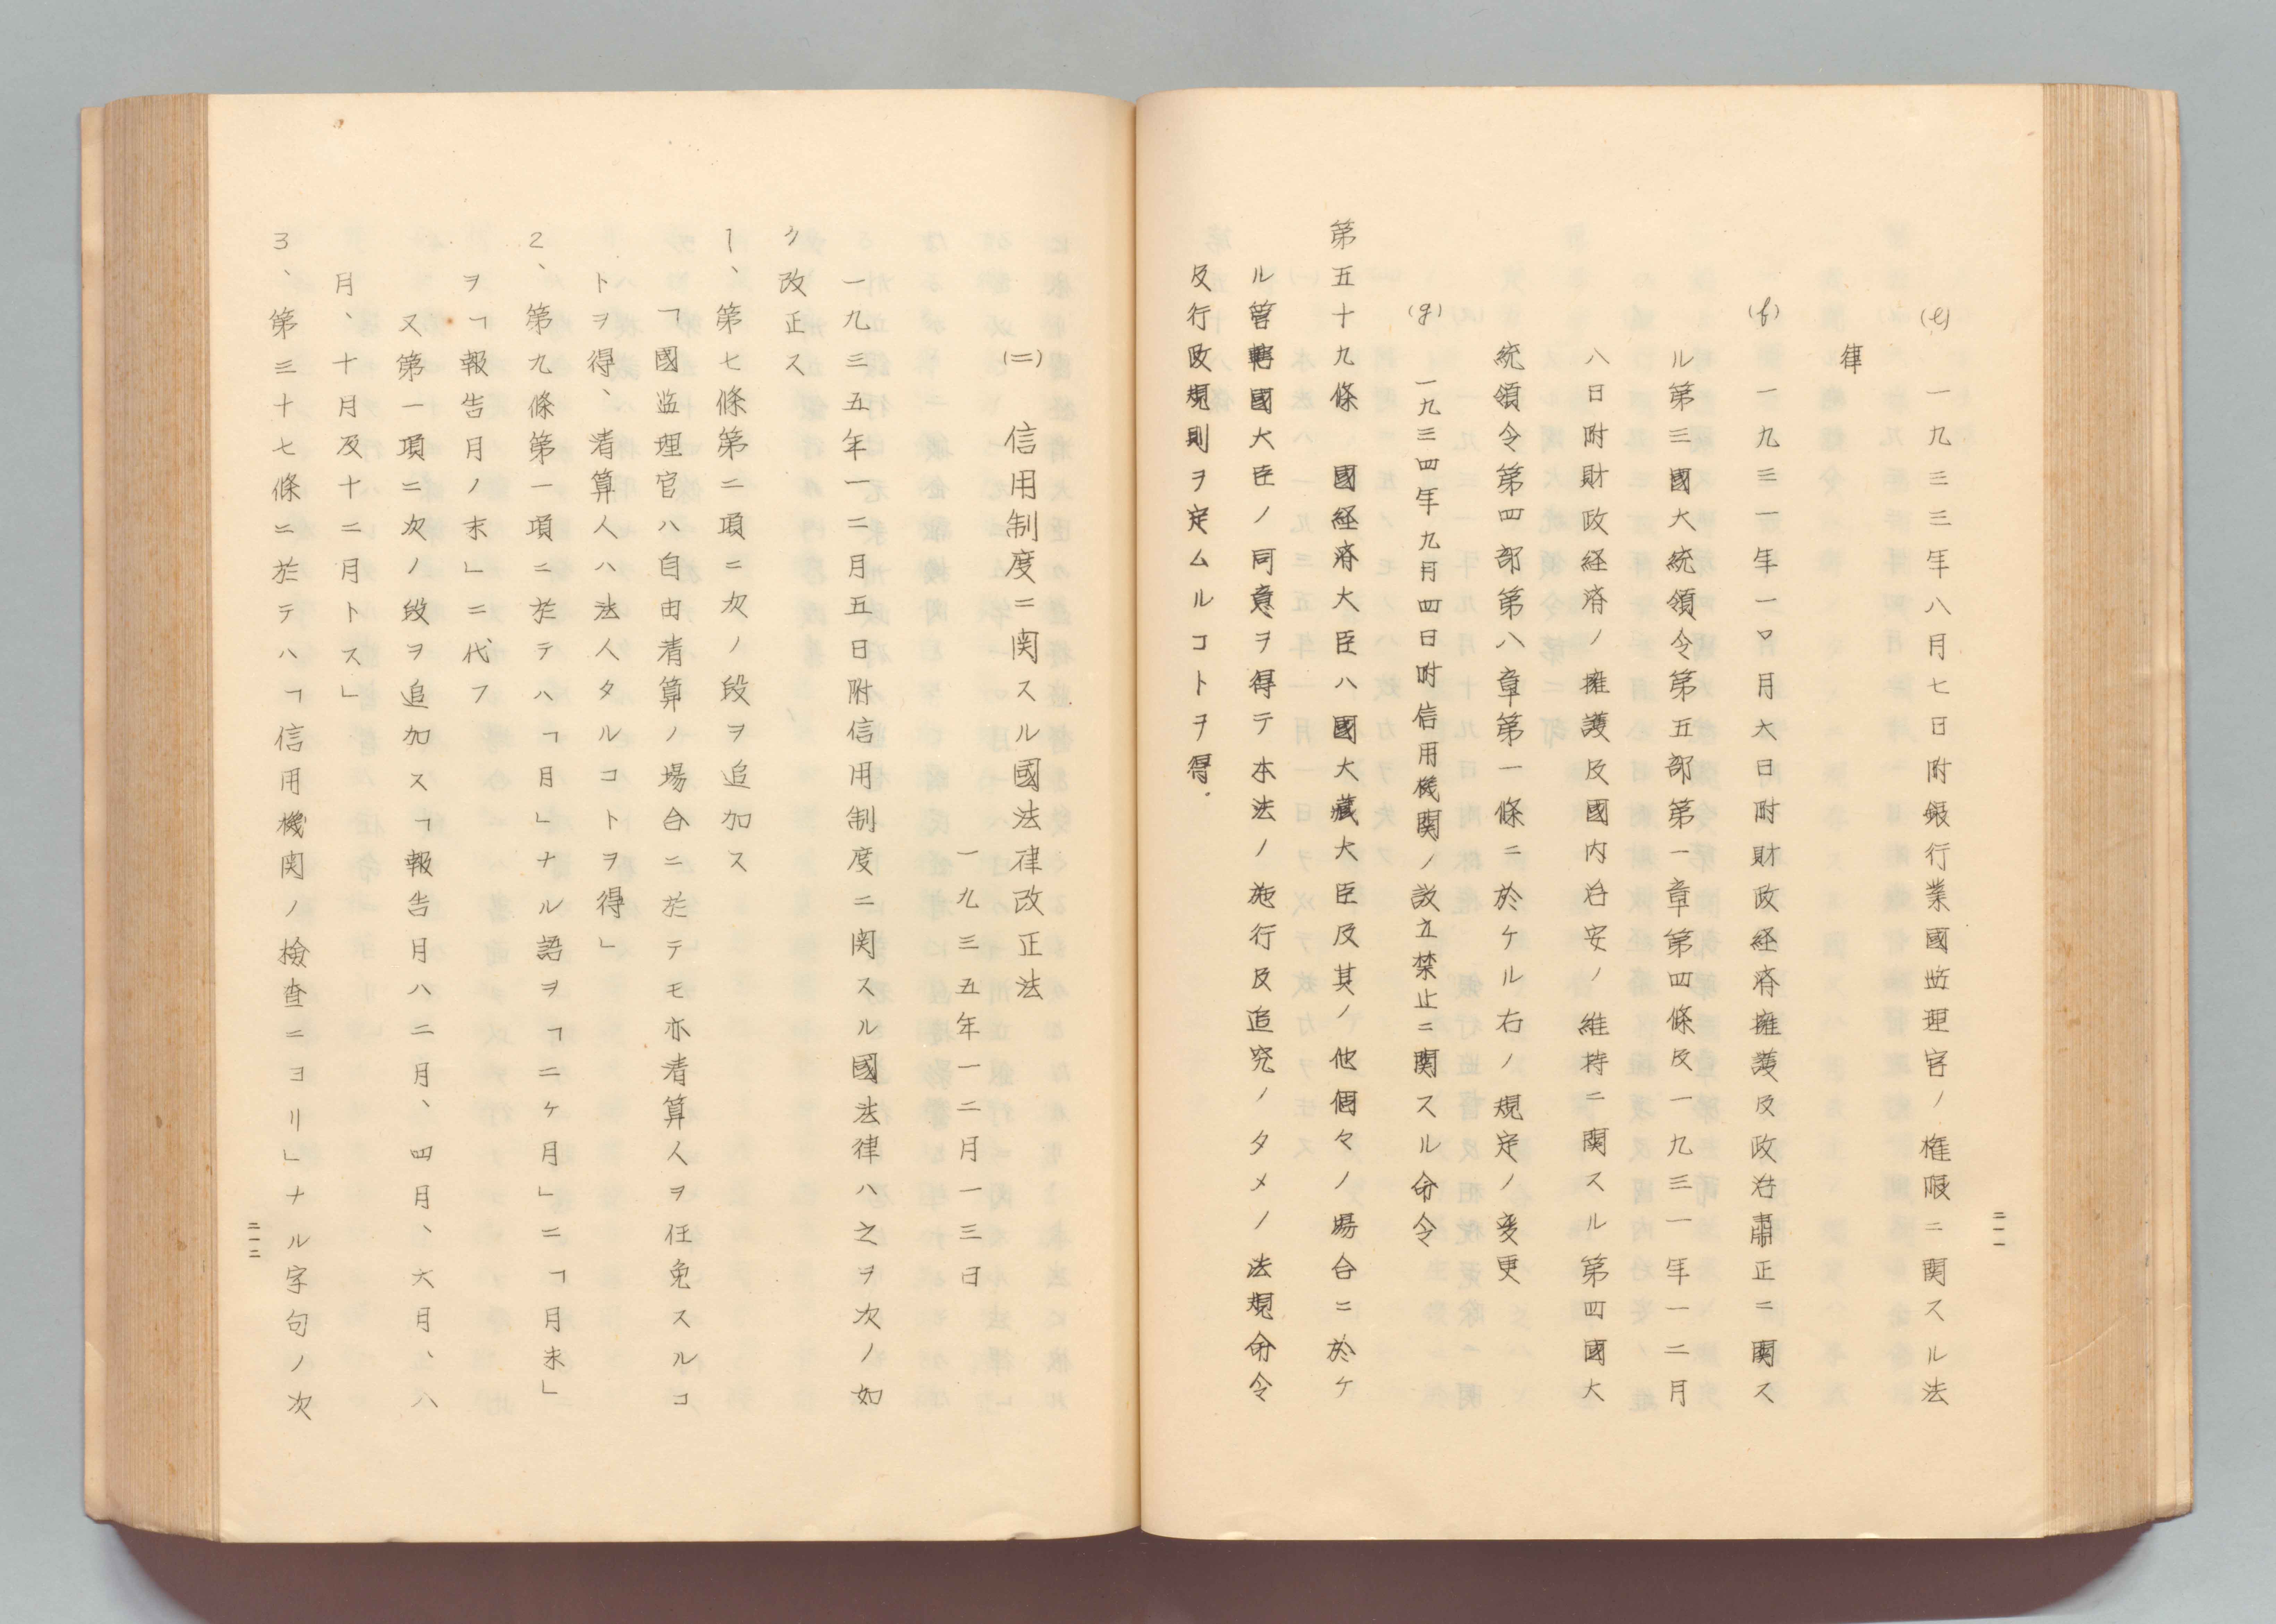 (e) 一九三三年八月七日附銀行業國監理官ノ権限ニ関スル法
律
(f) 一九三一年一〇月六日附財政経済擁護及政治肅正ニ関ス
ル第三國大統領令第五部第一章第四條及一九三一年一二月
八日附財政経済ノ擁護及國内治安ノ維持ニ関スル第四國大
統領令第四部第八章第一條ニ於ケル右ノ規定ノ変更
(g) 一九三四年九月四日附信用機関ノ設立禁止ニ関スル命令
第五十九條 國経済大臣ハ國大藏大臣及其ノ他個々ノ場合ニ於ケ
ル管轄國大臣ノ同意ヲ得テ本法ノ施行及追究ノタメノ法規命令
及行政規則ヲ定ムルコトヲ得.
二一一
(二) 信用制度ニ関スル國法律改正法
一九三五年一二月一三日
一九三五年一二月五日附信用制度ニ関スル國法律ハ之ヲ次ノ如
ク改正ス
1、第七條第二項ニ次ノ段ヲ追加ス
「國監理官ハ自由清算ノ場合ニ於テモ亦清算人ヲ任免スルコ
トヲ得、清算人ハ法人タルコトヲ得」
2、第九條第一項ニ於テハ「月」ナル語ヲ「二ケ月」ニ「月末」
ヲ「報告月ノ末」ニ代フ
又第一項ニ次ノ段ヲ追加ス「報告月ハ二月、四月、六月、八
月、十月及十二月トス」
3、第三十七條ニ於テハ「信用機関ノ検査ニヨリ」ナル字句ノ次
二一二